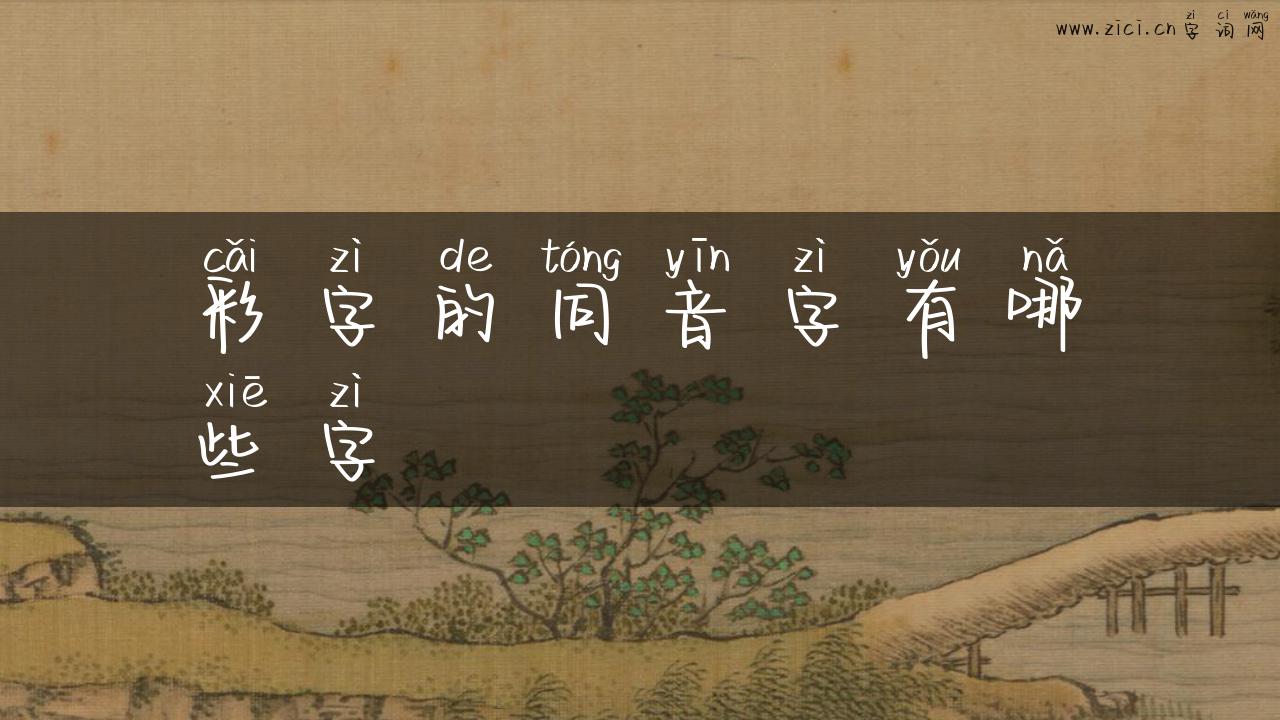 zì cí wǎng
www.zici.cn 字词网
cǎi zì de tóng yīn zì yǒu nǎ
彩字的同音字有哪
xiē zì
些字